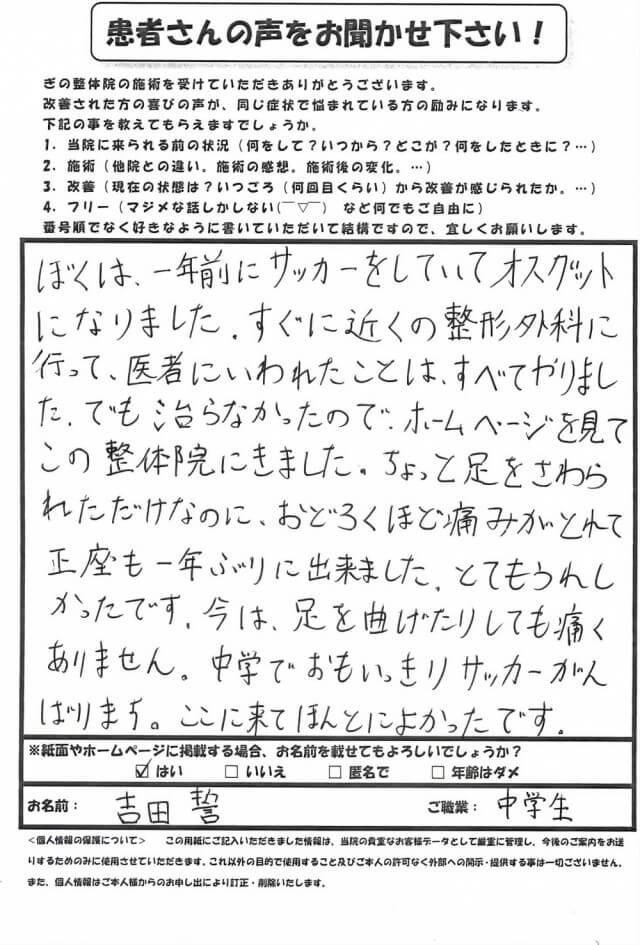 患者さんの声をお聞かせ下さい！
ぎの整体院の施術を受けていただきありがとうございます。
改善された方の喜びの声が、同じ症状で悩まれている方の励みになります。
下記の事を教えてもらえますでしょうか。
1．当院に来られる前の状況（何をして？いつから？どこが？何をしたときに？…）
2．施術（他院との違い。施術の感想。施術後の変化。…）
3．改善（現在の状態は？いつごろ（何回目くらい）から改善が感じられたか。…）
4．フリー（マジメな話しかしない(￣▽￣)　など何でもご自由に）
番号順でなく好きなように書いていただいて結構ですので、宜しくお願いします。
ぼくは、一年前にサッカーをしていてオスグット
になりました。すぐに近くの整形外科に
行って、医者にいわれたことは、すべてやりまし
た。でも治らなかったので、ホームページを見て
この整体院にきました。ちょっと足をさわら
れただけなのに、おどろくほど痛みがとれて
正座も一年ぶりに出来ました。とてもうれし
かったです。今は、足を曲げたりしても痛く
ありません。中学でおもいっきりサッカーがん
ばります。ここに来てほんとによかったです。
※紙面やホームページに掲載する場合、お名前を載せてもよろしいでしょうか？
☑ はい　□ いいえ　□ 匿名で　□ 年齢はダメ
お名前：吉田 誓　ご職業：中学生
＜個人情報の保護について＞　この用紙にご記入いただきました情報は、当院の貴重なお客様データとして厳重に管理し、今後のご案内をお送
りするためのみに使用させていただきます。これ以外の目的で使用すること及びご本人の許可なく外部への開示・提供する事は一切ございません。
また、個人情報はご本人様からのお申し出により訂正・削除いたします。